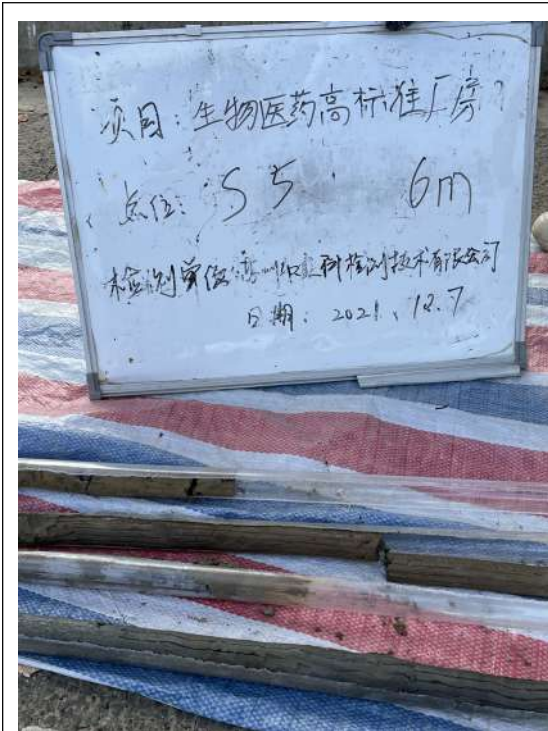 项目：生物医药高标准厂房
点位：S5 6m
检测单位：科检测技术有限公司
日期：2021、12.7